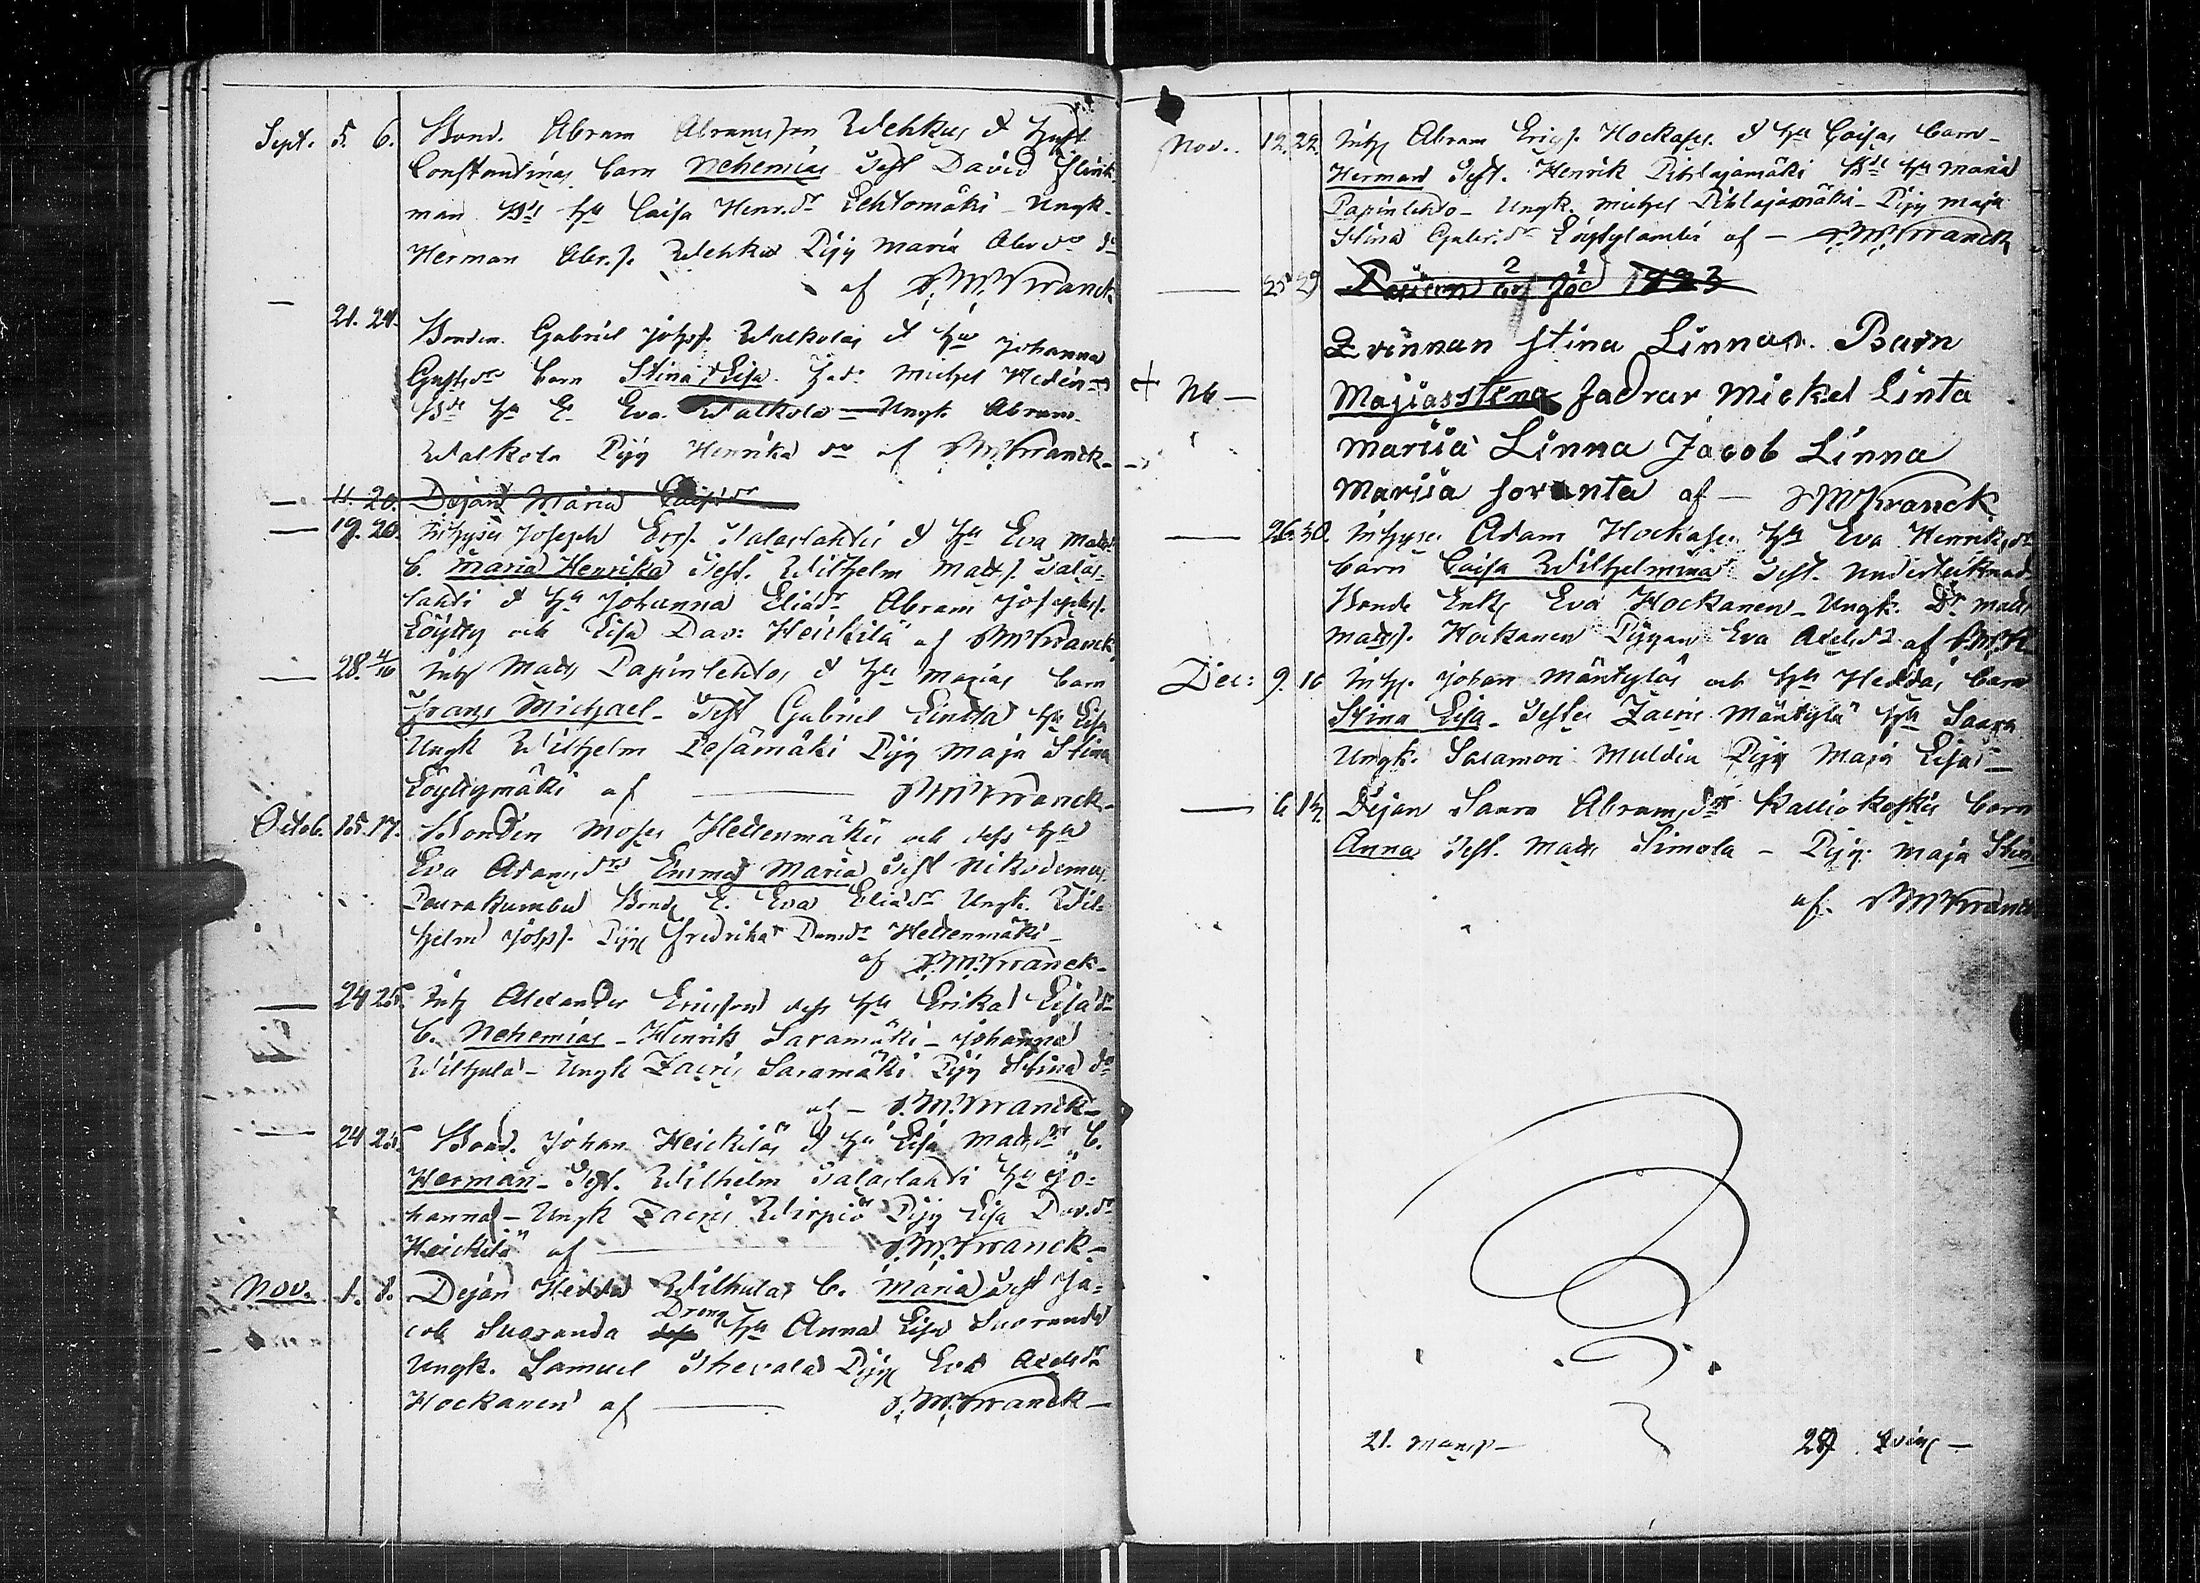 Sept. 5. 6. Bond. Abram Abramsson Wehkus & hust
Constantinas barn Nehemias Test David Flink
man Bds hu Caisa Henr.dr Lehtomäki - Ungk.
Herman Abr.s. Wehkus Pijg Maria Abr dr do
af S.M. Wranck
— 21. 24. Bonden Gabriel Johss. Walkolas & hu Johanna
Gusts.dr barn Stina Lisa Fad. Michel Hedén
Bds hu E. Eva Walkola — Ungk Abram
Walkola Pijg Henrika do af SMWranck
— 11. 20. Dejan Maria Caisas
— 19. 20. Inhyses Joseph Ers. Salaslahtis & hu Eva Mads.
b. Maria Henrika Test. Wilhelm Mats. Salas-
lahti & hu Johanna Eliasdr Abram Josephs.
Löytty och Lisa Dav: Heickilä af SMWranck
— 28. 4/10 Inh Mads Papinlehtos & hu Marias barn
Frans Michael - Test Gabriel Lintta hu Lisa
Ungk Wilhelm Pesämäki Pijg Maja Stina
Löyttymäki af — SMWranck
Octob. 15. 17. Bonden Moses Hettenmäkis och dess hu
Eva Adamsdr Emma Maria Test Nikodemus
Paurakumbu Bond. E. Eva Eliasdr Ungk. Wil-
helm Johss. Pijg Fredrika Davidsdr Hettenmäki -
af S.M. Wranck -
— 24 25. Inh Alexander Ericsson dess hu Erika Lisasdr
b. Nehemias - Henrik Saramäki - Johanna
Wilhula - Ungk Zacris Saramäki Pijg Stina do
af - S.M. Wranck -
— 24 25. Bond. Johan Heickiläs & hu Lisa Mads.dr b.
Herman - Test. Wilhelm Salaslahti hu Jo-
hanna - Ungk Zacris Wirpiö Pijg Lisa Dav.dr
Heickilä af — S.M. Wranck -
Nov. 1. 1. Dejan Hedda Wilhulas b. Maria Test Ja-
cob Suoranda Dreng hu Anna Lisa Suoranda
Ungk. Samuel Ihevala Pijg Eva Axelsdr
Hockanen af — S.M. Wranck -
Nov. 12. 22. Inh Abram Erics. Hockases & hu Caisas barn -
Herman Test. Henrik Pihlajamäki Bds hu Maria
Papinlehto - Ungk. Michel Pihlajamäki - Pijg Maja
Stina Gabr.dr Löytylambi af - S.M. Wranck
— 25 29 1823
Qvinnan Stina Linnas. Barn
+ Nb — Majiasstina fadrar Mickel Linta
Mariia Linna Jacob Linna
Mariia soranta af — SMWranck
— 26. 30. Inhyses Adam Hockases hu Eva Henriksdr
barn Caisa Wilhelmina Test. Undertecknad
Bonde Enk. Eva Hockanen - Ungk. Dr. Mads
Mads. Hockanen Pijgan Eva Axelsdr af S.M.W.
Dec: 9. 10 Inh. Johan Mäntyläs och hu Heddas barn
Stina Lisa - Testes Zacris Mäntylä hu Saara
Ungk. Salamon Muldia Pijg Maja Lisa —
— 6 14 Dejan Saara Abramsdrs Kalliokoskis barn
Anna Test. Mads Simola - Pijg. Maja Stina
af. SMWranck
21. Mansp — 29 Qvinsp —